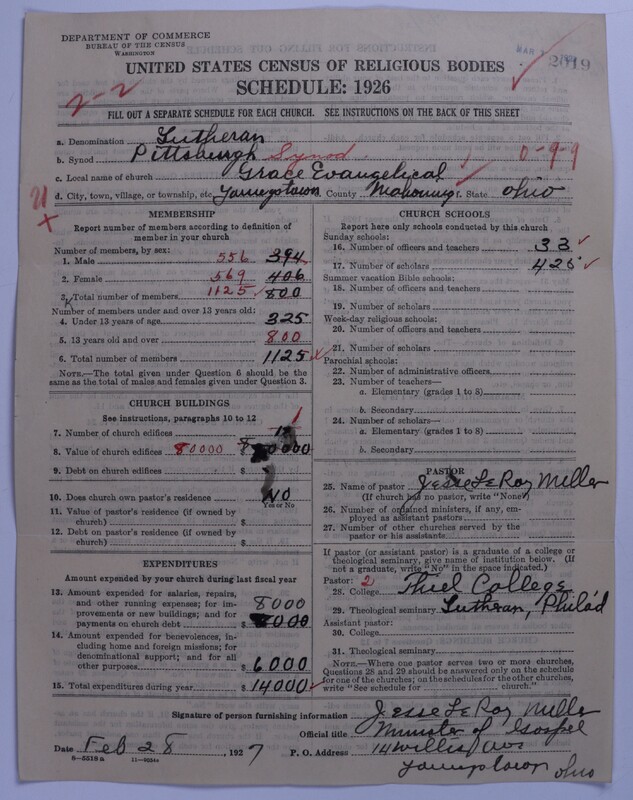 DEPARTMENT OF COMMERCE
BUREAU OF THE CENSUS
WASHINGTON
MAR
2019
UNITED STATES CENSUS OF RELIGIOUS BODIES
SCHEDULE: 1926
2-2
FILL OUT A SEPARATE SCHEDULE FOR EACH CHURCH. SEE INSTRUCTIONS ON THE BACK OF THIS SHEET
a. Denomination Lutheran
b. Synod Pittsburgh Synod 0-9-9
c. Local name of church Grace Evangelical
d. City, town, village, or township, etc. Youngstown e. County Mahoning f. State Ohio
MEMBERSHIP
Report number of members according to definition of member in your church
Number of members, by sex:
1. Male 556 394
2. Female 569 406
3. Total number of members 1125 800
Number of members under and over 13 years old:
4. Under 13 years of age 325
5. 13 years old and over 800
6. Total number of members 1125
NOTE.—The total given under Question 6 should be the same as the total of males and females given under Question 3.
CHURCH BUILDINGS
See instructions, paragraphs 10 to 12
7. Number of church edifices 1
8. Value of church edifices 80000 $ 80000
9. Debt on church edifices $
10. Does church own pastor's residence No
Yes or No
11. Value of pastor's residence (if owned by church) $
12. Debt on pastor's residence (if owned by church) $
EXPENDITURES
Amount expended by your church during last fiscal year
13. Amount expended for salaries, repairs, and other running expenses; for improvements or new buildings; and for payments on church debt $ 8000
8000
14. Amount expended for benevolences, including home and foreign missions; for denominational support; and for all other purposes $ 6000
15. Total expenditures during year $ 14000
CHURCH SCHOOLS
Report here only schools conducted by this church
Sunday schools:
16. Number of officers and teachers 33
17. Number of scholars 425
Summer vacation Bible schools:
18. Number of officers and teachers
19. Number of scholars
Week-day religious schools:
20. Number of officers and teachers
21. Number of scholars
Parochial schools:
22. Number of administrative officers
23. Number of teachers—
a. Elementary (grades 1 to 8)
b. Secondary
24. Number of scholars—
a. Elementary (grades 1 to 8)
b. Secondary
PASTOR
25. Name of pastor Jesse Le Roy Miller
(If church has no pastor, write "None")
26. Number of ordained ministers, if any, employed as assistant pastors
27. Number of other churches served by the pastor or his assistants
If pastor (or assistant pastor) is a graduate of a college or theological seminary, give name of institution below. (If not a graduate, write "No" in the space indicated.)
Pastor: 2
28. College Thiel College
29. Theological seminary Lutheran, Philad
Assistant pastor:
30. College
31. Theological seminary
NOTE.—Where one pastor serves two or more churches, Questions 28 and 29 should be answered only on the schedule for one of the churches; on the schedules for the other churches, write "See schedule for ______ church."
Signature of person furnishing information Jesse Le Roy Miller
Official title Minister of Gospel
Date Feb 28, 1927 P. O. Address 14 Willis Ave
Youngstown Ohio
8-5518a